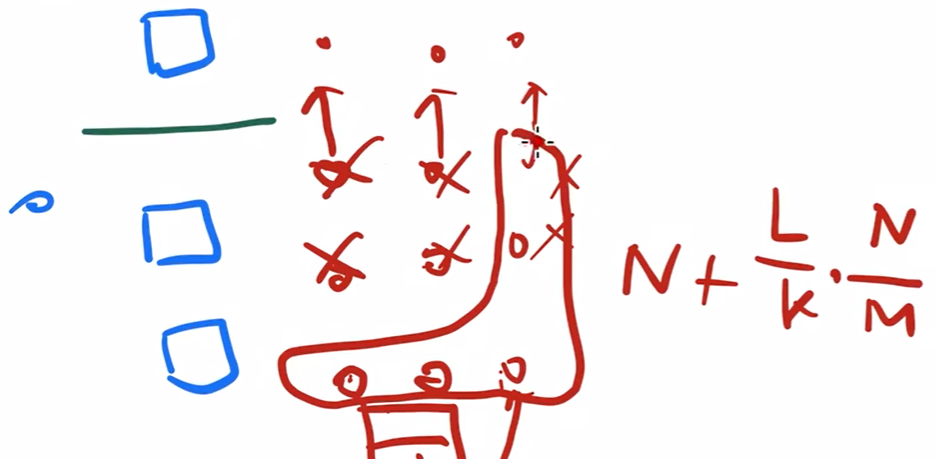 N + L/K · N/M